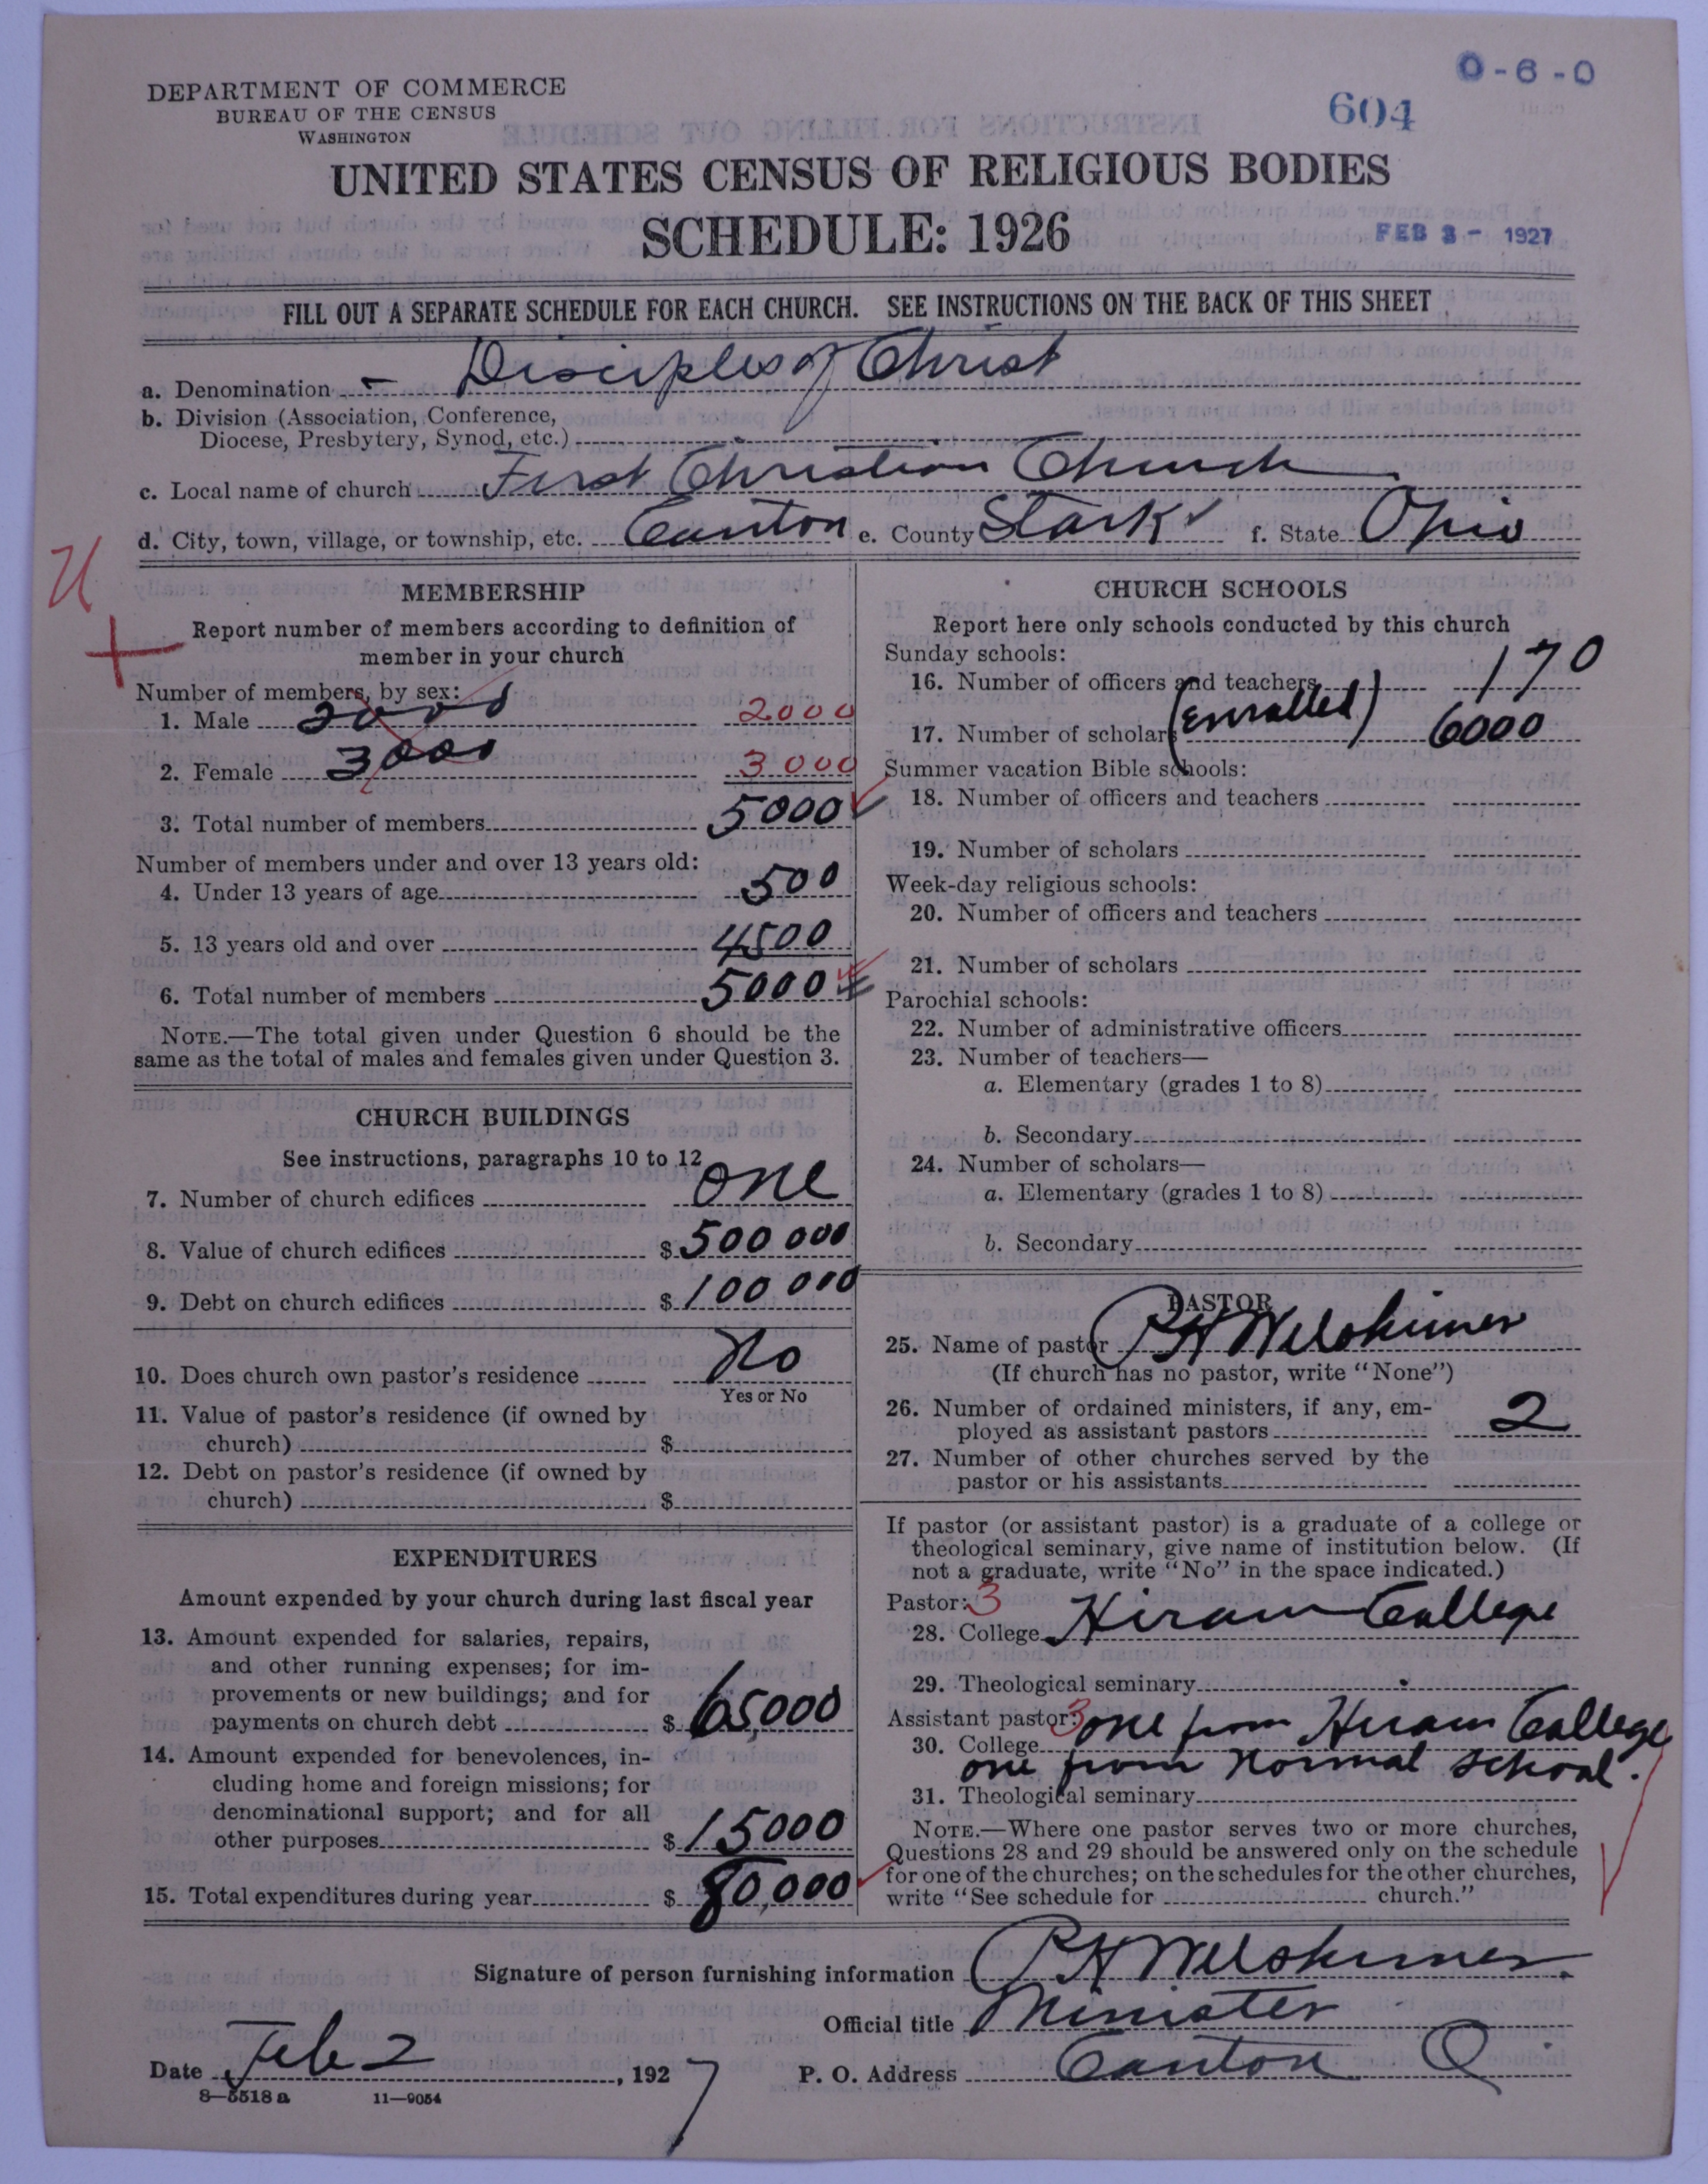 DEPARTMENT OF COMMERCE
BUREAU OF THE CENSUS
WASHINGTON
0-6-0
604
UNITED STATES CENSUS OF RELIGIOUS BODIES
SCHEDULE: 1926
FEB 3 - 1927
FILL OUT A SEPARATE SCHEDULE FOR EACH CHURCH. SEE INSTRUCTIONS ON THE BACK OF THIS SHEET
a. Denomination Disciples of Christ
b. Division (Association, Conference,
Diocese, Presbytery, Synod, etc.)
c. Local name of church First Christian Church
d. City, town, village, or township, etc. Canton e. County Stark f. State Ohio
MEMBERSHIP
Report number of members according to definition of
member in your church
Number of members, by sex:
1. Male 2000 2000
2. Female 3000 3000
3. Total number of members 5000
Number of members under and over 13 years old:
4. Under 13 years of age 500
5. 13 years old and over 4500
6. Total number of members 5000
NOTE.—The total given under Question 6 should be the
same as the total of males and females given under Question 3.
CHURCH BUILDINGS
See instructions, paragraphs 10 to 12
7. Number of church edifices one
8. Value of church edifices $ 500 000
9. Debt on church edifices $ 100 000
10. Does church own pastor's residence No
Yes or No
11. Value of pastor's residence (if owned by
church) $
12. Debt on pastor's residence (if owned by
church) $
EXPENDITURES
Amount expended by your church during last fiscal year
13. Amount expended for salaries, repairs,
and other running expenses; for im-
provements or new buildings; and for
payments on church debt $ 65,000
14. Amount expended for benevolences, in-
cluding home and foreign missions; for
denominational support; and for all
other purposes $ 15000
15. Total expenditures during year $ 80,000
CHURCH SCHOOLS
Report here only schools conducted by this church
Sunday schools:
16. Number of officers and teachers 170
17. Number of scholars (Enrolled) 6000
Summer vacation Bible schools:
18. Number of officers and teachers
19. Number of scholars
Week-day religious schools:
20. Number of officers and teachers
21. Number of scholars
Parochial schools:
22. Number of administrative officers
23. Number of teachers—
a. Elementary (grades 1 to 8)
b. Secondary
24. Number of scholars—
a. Elementary (grades 1 to 8)
b. Secondary
PASTOR
25. Name of pastor P H Welshimer
(If church has no pastor, write "None")
26. Number of ordained ministers, if any, em-
ployed as assistant pastors 2
27. Number of other churches served by the
pastor or his assistants
If pastor (or assistant pastor) is a graduate of a college or
theological seminary, give name of institution below. (If
not a graduate, write "No" in the space indicated.)
Pastor: 3
28. College Hiram College
29. Theological seminary
Assistant pastor: 3
30. College one from Hiram College
one from Normal School.
31. Theological seminary
NOTE.—Where one pastor serves two or more churches,
Questions 28 and 29 should be answered only on the schedule
for one of the churches; on the schedules for the other churches,
write "See schedule for church."
Signature of person furnishing information P H Welshimer
Official title Minister
Date Feb 2, 1927 P. O. Address Canton O
8—5518 a 11—9054